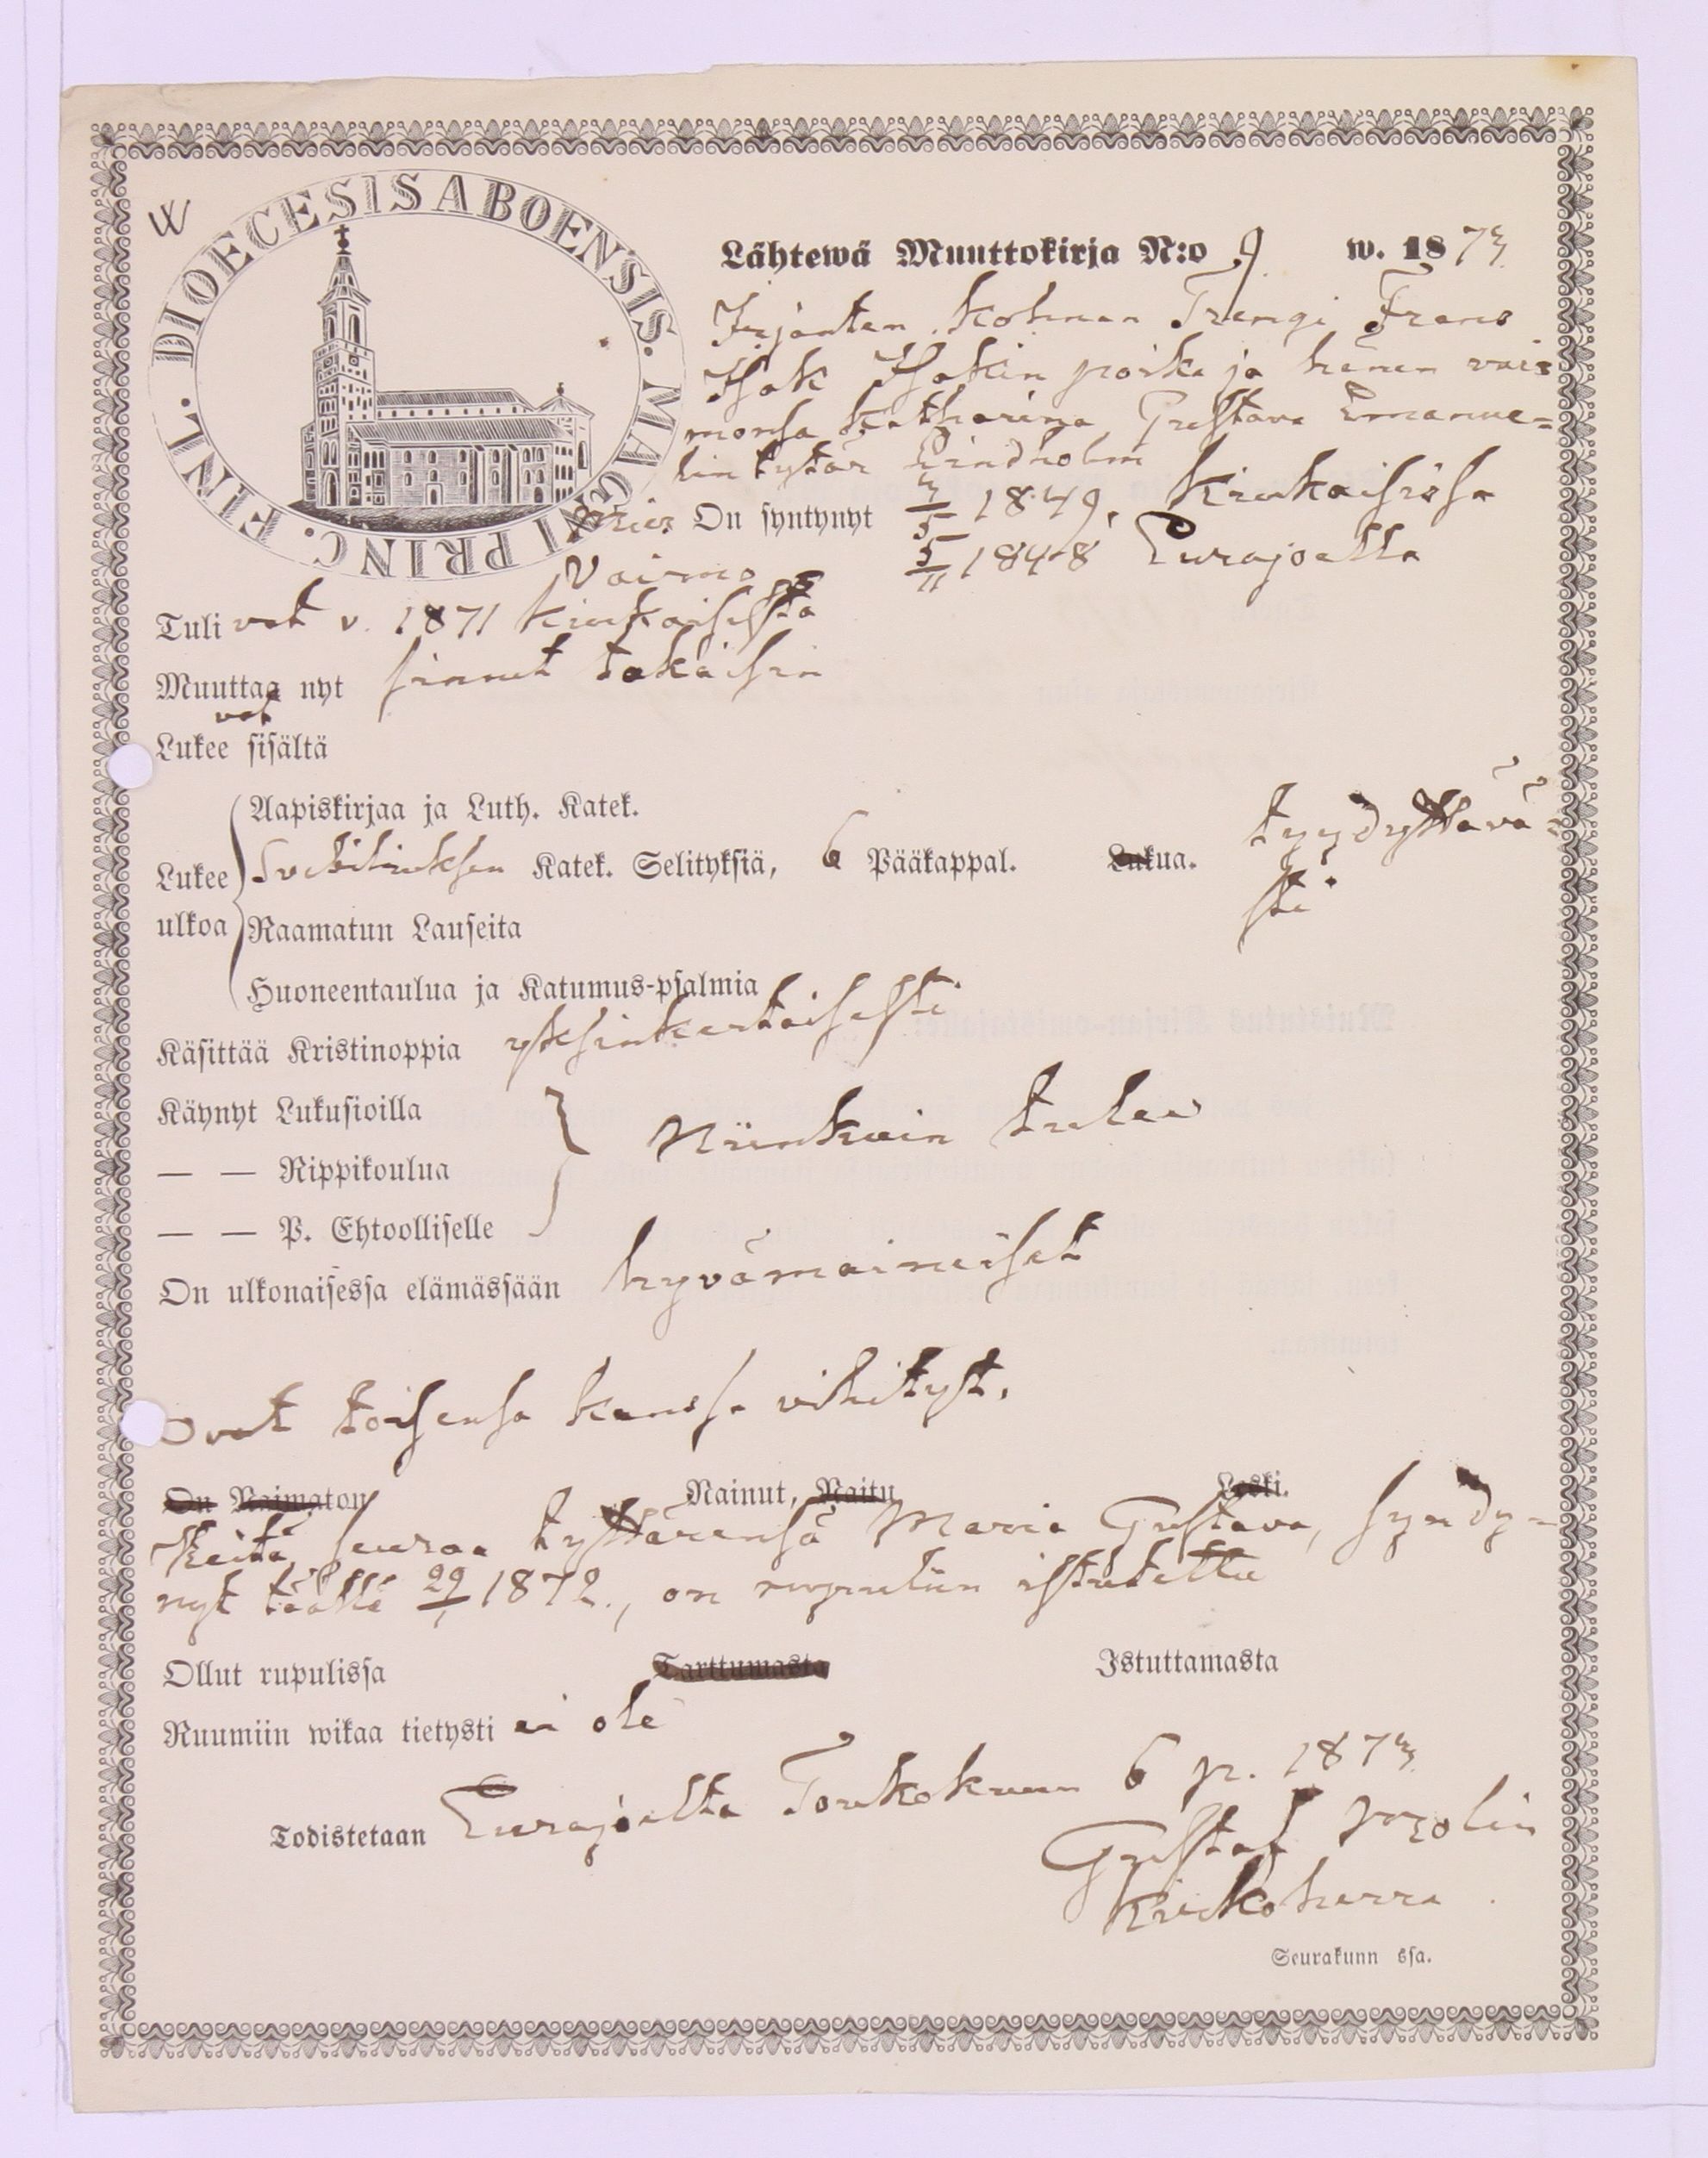 W
DIOECESIS ABOENSIS. MAGNI PRINC. FINL.
Lähtewä Muuttokirja N:o 9 w. 1873
Irjanten Kohnan Trengi Frans
Isak Isakin poika ja hänen vai-
monsa Katharina Gustava Emanue=
lin tytär Lindholm
Mies On syntynyt 3/5 1849, Kiukaisissa
Vaimo 5/11 1848 Eurajoella
Tulivat v. 1871 Kiukaisista
Muuttaavat nyt sinnet takaisin
Lukee sisältä
Aapiskirjaa ja Luth. Katek.
Lukee ulkoa Svebiliuksen Katek. Selityksiä, 6 Pääkappal. Lukua. tyydyttävä=
sti.
Raamatun Lauseita
Huoneentaulua ja Katumus-psalmia
Käsittää Kristinoppia yksinkertaisesti
Käynyt Lukusioilla
— — Rippikoulua Niinkuin tulee
— — P. Ehtoolliselle
On ulkonaisessa elämässään hyvämaineiset
Ovat toisensa kanssa vihityt.
On Naimaton Nainut, Naitu Leski.
Heitä seuraa tyttärensä Maria Gustava, syndy=
nyt täällä 29/1 1872., on rupuliin istutettu
Ollut rupulissa Tarttumasta Istuttamasta
Ruumiin wikaa tietysti ei ole
Todistetaan Eurajoella Toukokuun 6 p. 1873
Gustaf Polin
Kirkoherra
Seurakunn ssa.